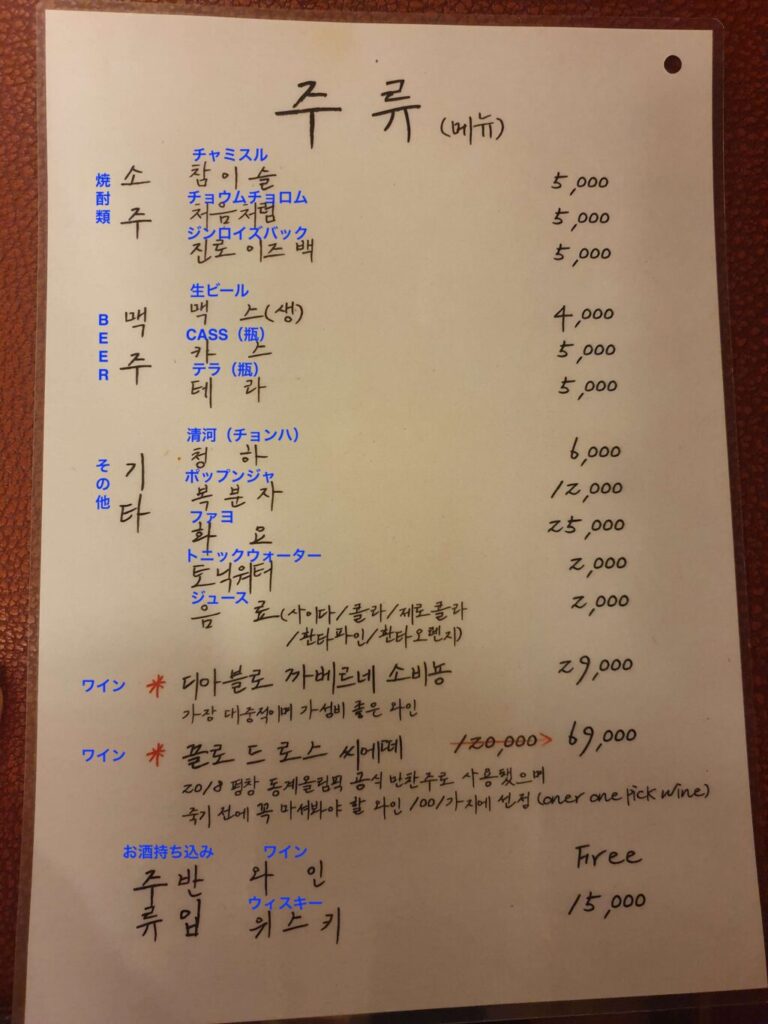 주 류 (메뉴)
焼酎類 소주
チャミスル
참이슬 5,000
チョウムチョロム
처음처럼 5,000
ジンロイズバック
진로 이즈 백 5,000
BEER 맥주
生ビール
맥 스(생) 4,000
CASS（瓶）
카 스 5,000
テラ（瓶）
테 라 5,000
その他 기타
清河（チョンハ）
청 하 6,000
ポップンジャ
복분자 12,000
ファヨ
화 요 25,000
トニックウォーター
토닉워터 2,000
ジュース
음 료(사이다/콜라/제로콜라 2,000
/환타파인/환타오렌지)
ワイン * 디아블로 까베르네 소비뇽 29,000
가장 대중적이며 가성비 좋은 와인
ワイン * 끌로 드 로스 씨에떼 120,000 → 69,000
2018 평창 동계올림픽 공식 만찬주로 사용됐으며
죽기 전에 꼭 마셔봐야 할 와인 1001가지에 선정 (oner one pick wine)
お酒持ち込み ワイン
주류 반입 와 인 Free
ウィスキー
위스키 15,000